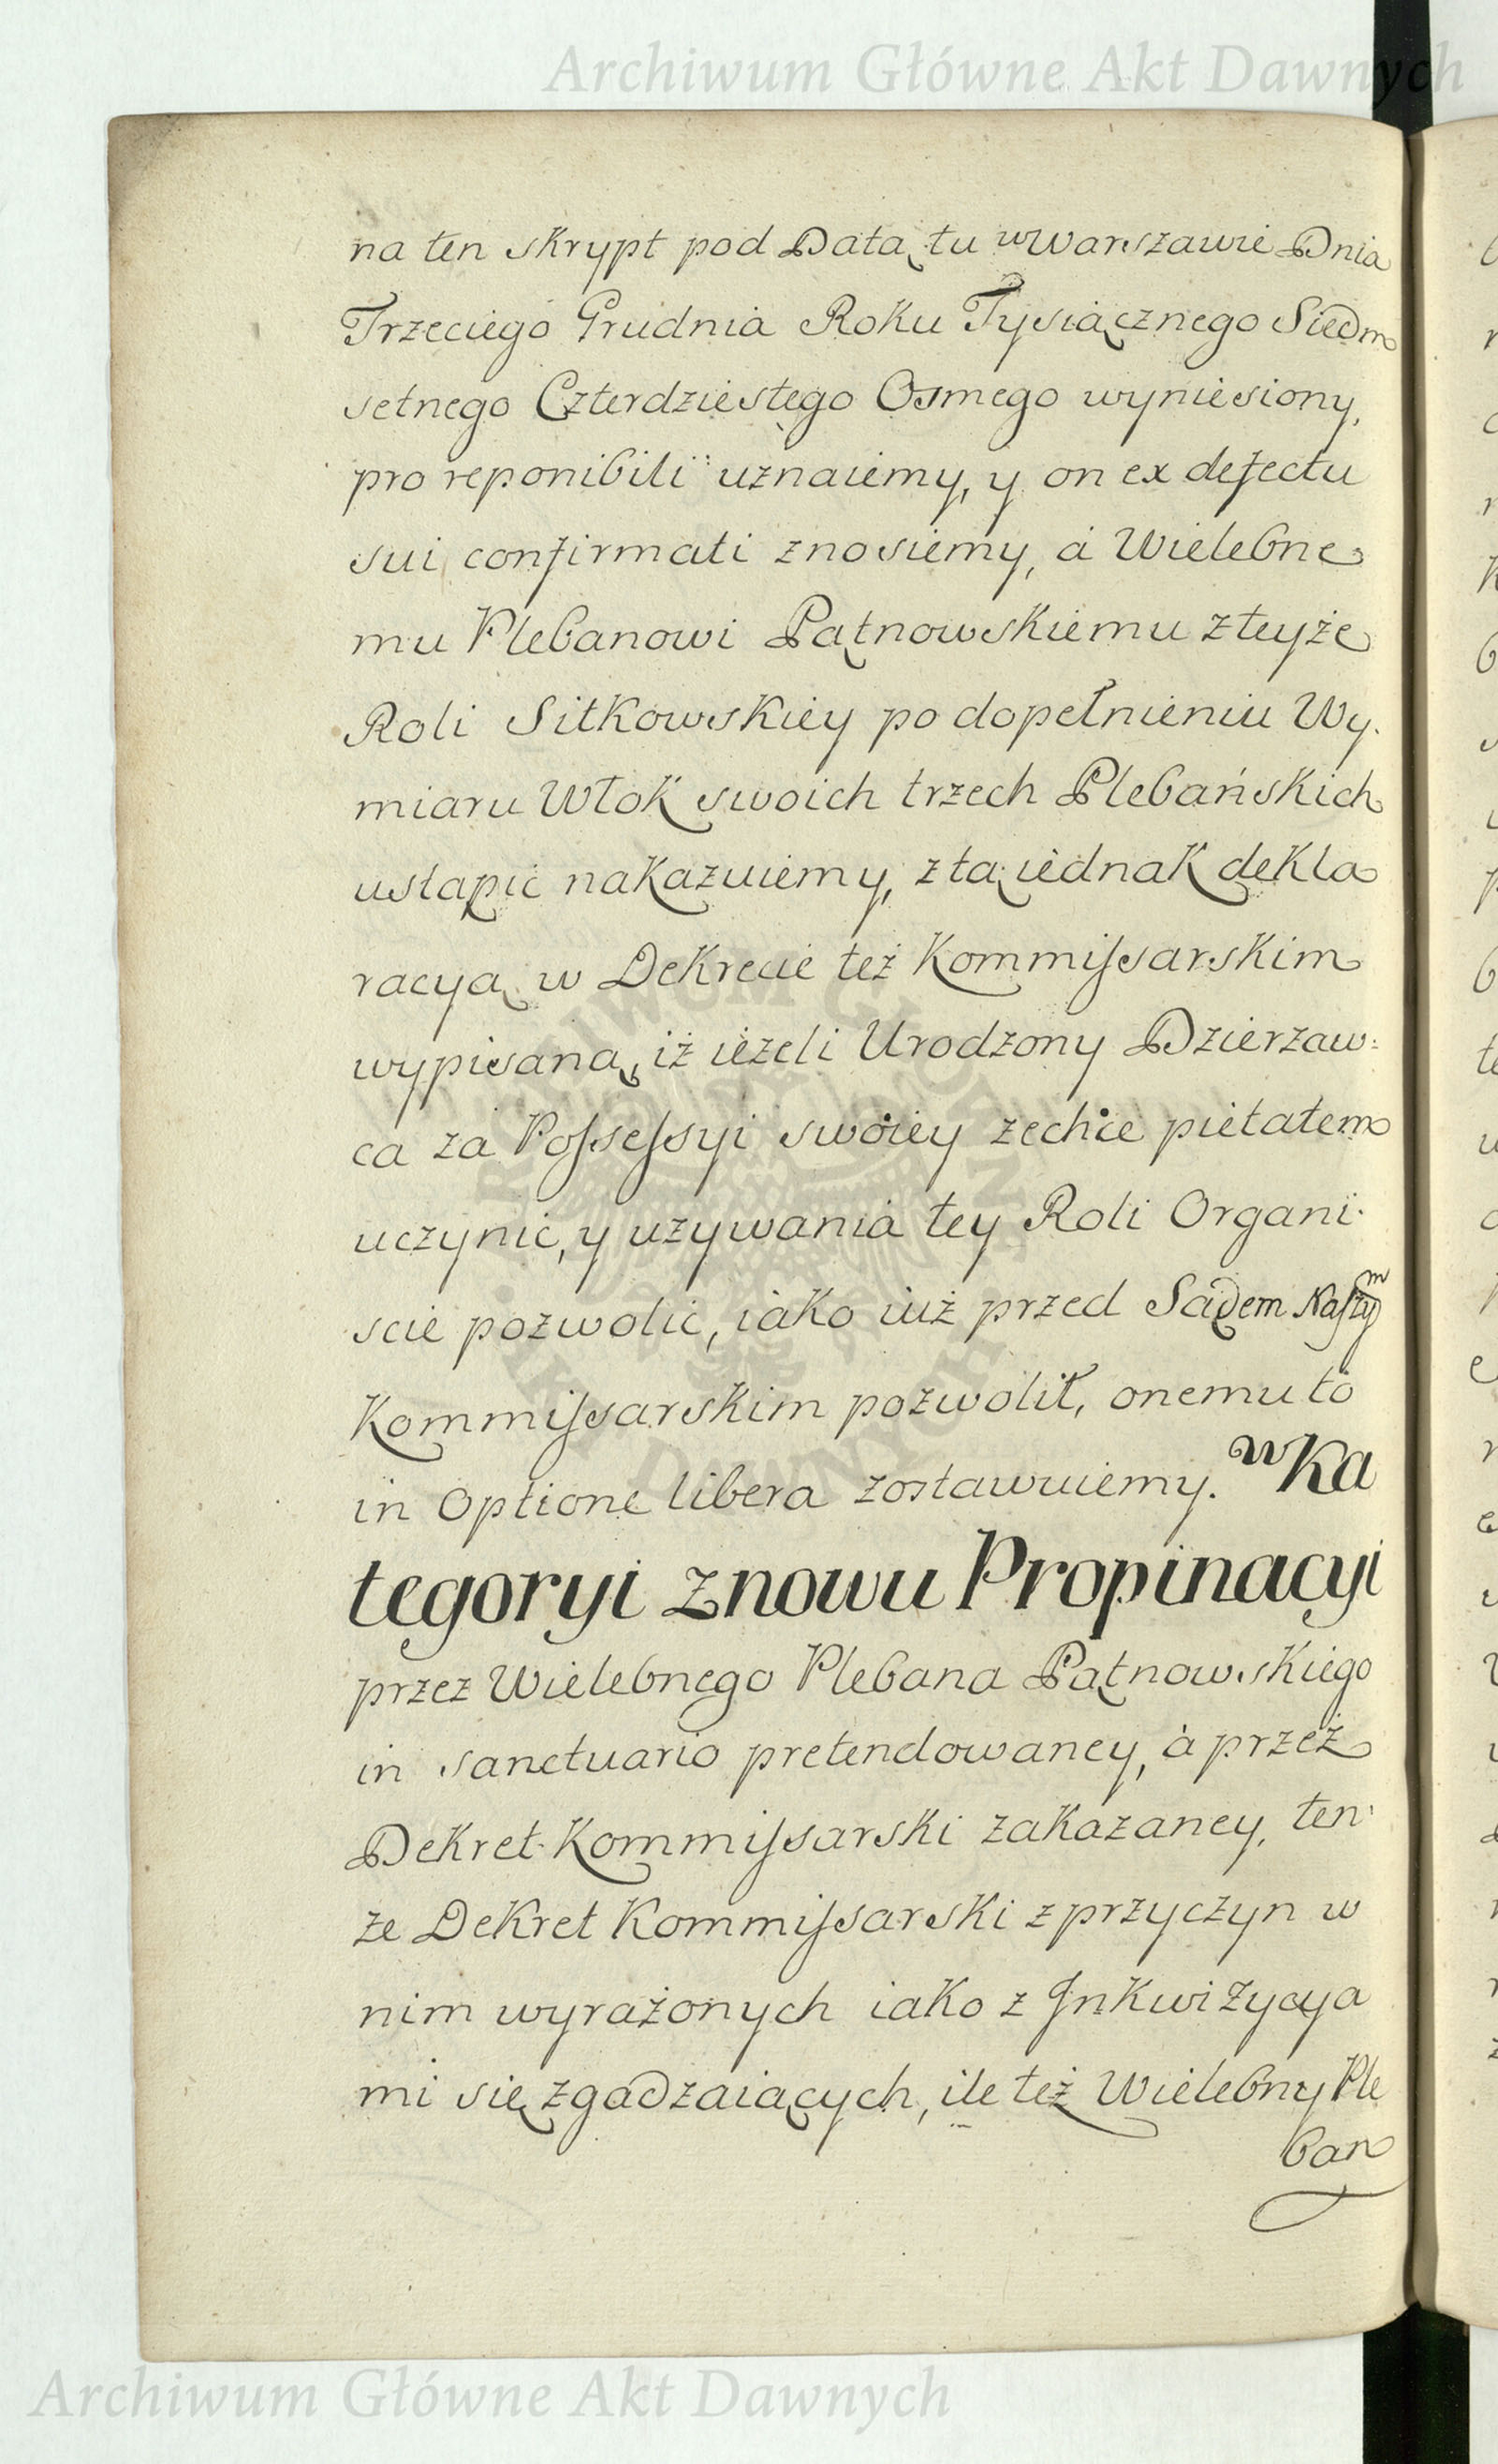 Archiwum Główne Akt Dawnych
na ten skrypt pod Datą tu w Warszawie Dnia
Trzeciego Grudnia Roku Tysiącznego Siedm
setnego Czterdziestego Osmego wyniesiony,
pro reponibili uznaiemy, y on ex defectu
sui confirmati znosiemy, á Wielebne
mu Plebanowi Pątnowskiemu z teyże
Roli Sitkowskiey po dopełnieniu Wy.
miaru Włok swoich trzech Plebańskich
ustąpić nakazuiemy, z tą iednak dekla
racyą w Dekrecie też Kommissarskim
wypisaną, iż ieżeli Urodzony Dzierzaw=
ca za Possessyi swoiey zechce pietatem
uczynić, y używania tey Roli Organi.
scie pozwolić, iako iuż przed Sądem Naszym
Kommissarskim pozwolił, onemu to
in Optione libera zostawuiemy. w Ka
tegoryi znowu Propinacyi
przez Wielebnego Plebana Pątnowskiego
in sanctuario pretendowaney, à przez
Dekret Kommissarski zakazaney, ten
że Dekret Kommissarski z przyczyn w
nim wyrażonych iako z Jnkwizycya
mi się zgadzaiących, ile też Wielebny Ple
ban
Archiwum Główne Akt Dawnych